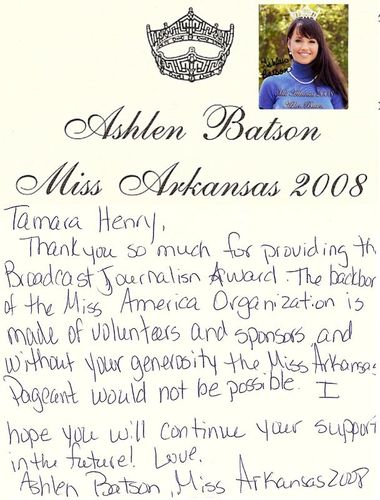 Ashlen Batson
Miss Arkansas 2008
Tamara Henry,
Thank you so much for providing th
Broadcast Journalism Award. The backbon
of the Miss America Organization is
made of volunteers and sponsors, and
without your generosity the Miss Arkansas
Pageant would not be possible. I
hope you will continue your support
in the future! Love,
Ashlen Batson, Miss Arkansas 2008